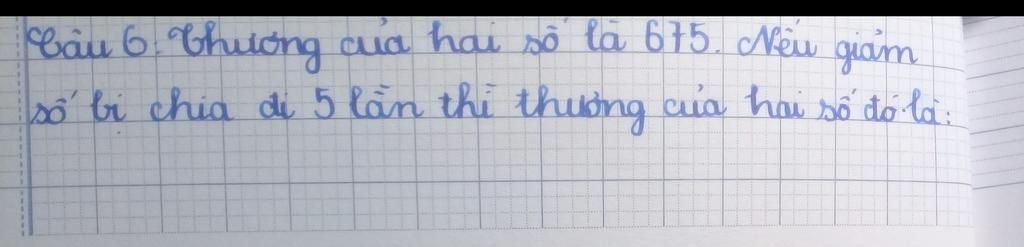 Câu 6. Thương của hai số là 675. Nếu giảm
số bị chia đi 5 lần thì thương của hai số đó là: